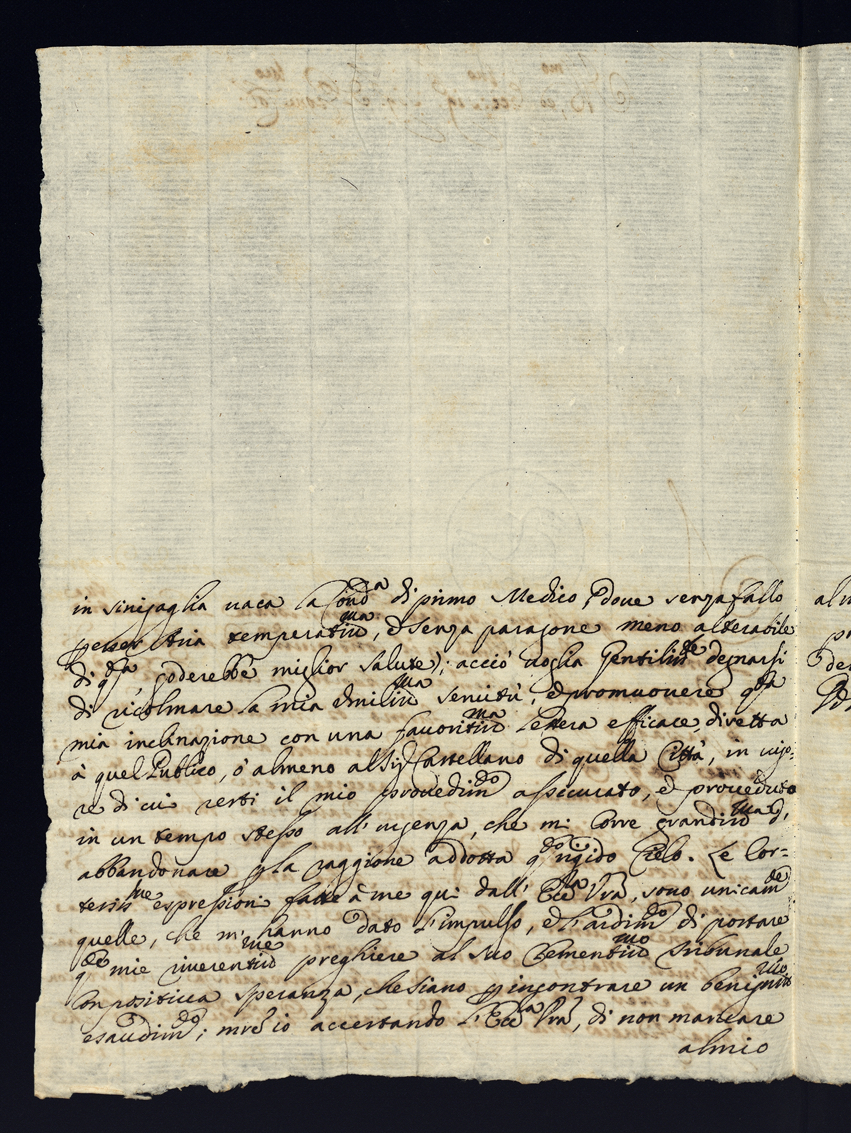 in sinigaglia uaca la Cond.a di primo Medico, doue senza fallo
per esser Aria temperatiss.ma, e senza paragone meno alterabile
di q.sta goderebbe miglior salute); acciò uoglia Gentilm.te degnarsi
di ricolmare la mia Umiliss.ma seruitù, e promuouere q.sta
mia inclinazione con una fauoritiss.ma lettera efficace, diretta
à quel Publico, ò almeno al Sig. Castellano di quella Città, in uigo-
re di cui resti il mio prouedim.to assicurato, e proueduto
in un tempo stesso all' urgenza, che mi corre grandiss.ma d'
abbandonare p la raggione addotta q.sto rigido Cielo. Le Cor-
tesiss.me espressioni fatte à me qui dall' Ecc.za Vra, sono unicam.te
quelle, che m' hanno dato l' impulso, e l' ardim.to di portare
q.ste mie riuerentiss.me preghiere al suo Clementiss.mo Tribunale
con positiua speranza, che siano p incontrare un benigniss.mo
esaudim.to; mentre io accertando l' Ecc.za Vra, di non mancare
al mio